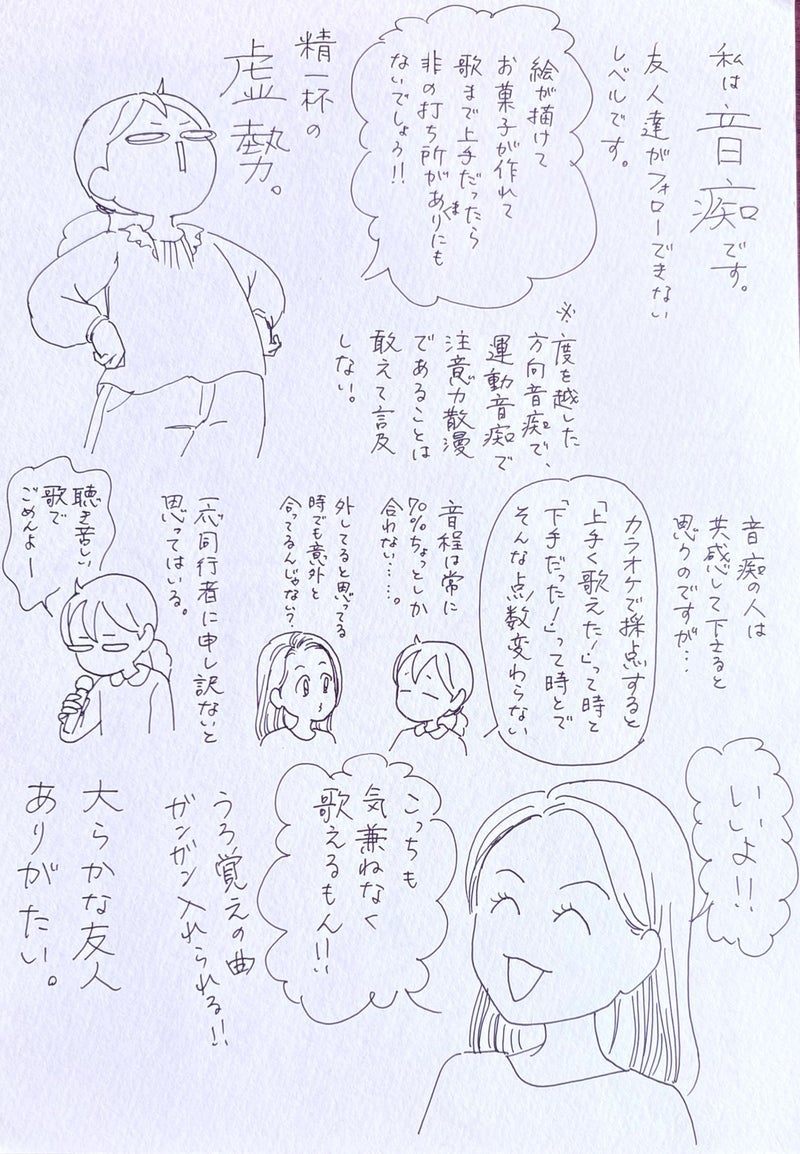 私は音痴です。
友人達がフォローできない
レベルです。
絵が描けて
お菓子が作れて
歌まで上手だったら
非の打ち所がありにも
まく
ないでしょう!!
精一杯の
虚勢。
※度を越した
方向音痴で、
運動音痴で
注意力散漫
であることは
敢えて言及
しない。
音痴の人は
共感して下さると
思うのですが…
カラオケで採点すると
「上手く歌えた!」って時と
「下手だった!」って時とで
そんな点数変わらない
音程は常に
70%ちょっとしか
合わない……。
外してると思ってる
時でも意外と
合ってるんじゃない?
一応同行者に申し訳ないと
思ってはいる。
聴き苦しい
歌で
ごめんよー
いいよ!!
こっちも
気兼ねなく
歌えるもん!!
うろ覚えの曲
ガンガン入れられる!!
大らかな友人
ありがたい。